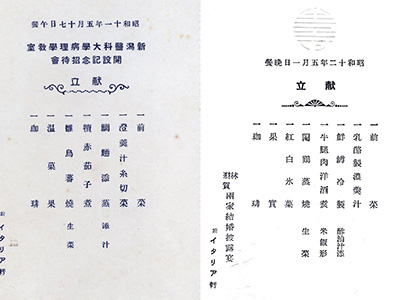 昭和十一年五月十七日午餐
新潟醫科大學病理學教室
開設記念招待會
献立
一前菜
一澄羹汁糸切菜
一鯛添汁
一犢赤茄子煮
一雛鳥蒸燒生菜
一温菓
一珈琲
於イタリア軒
昭和十二年五月一日晩餐
献立
一前菜
一乳酪製濃羹汁
一鮮鱒冷製 酢油汁添
一牛腿肉洋酒煮 米飯形
一閹鶏蒸燒 生菜
一紅白氷菓
一果實
一珈琲
林
羽賀
兩家結婚披露宴
於イタリア軒